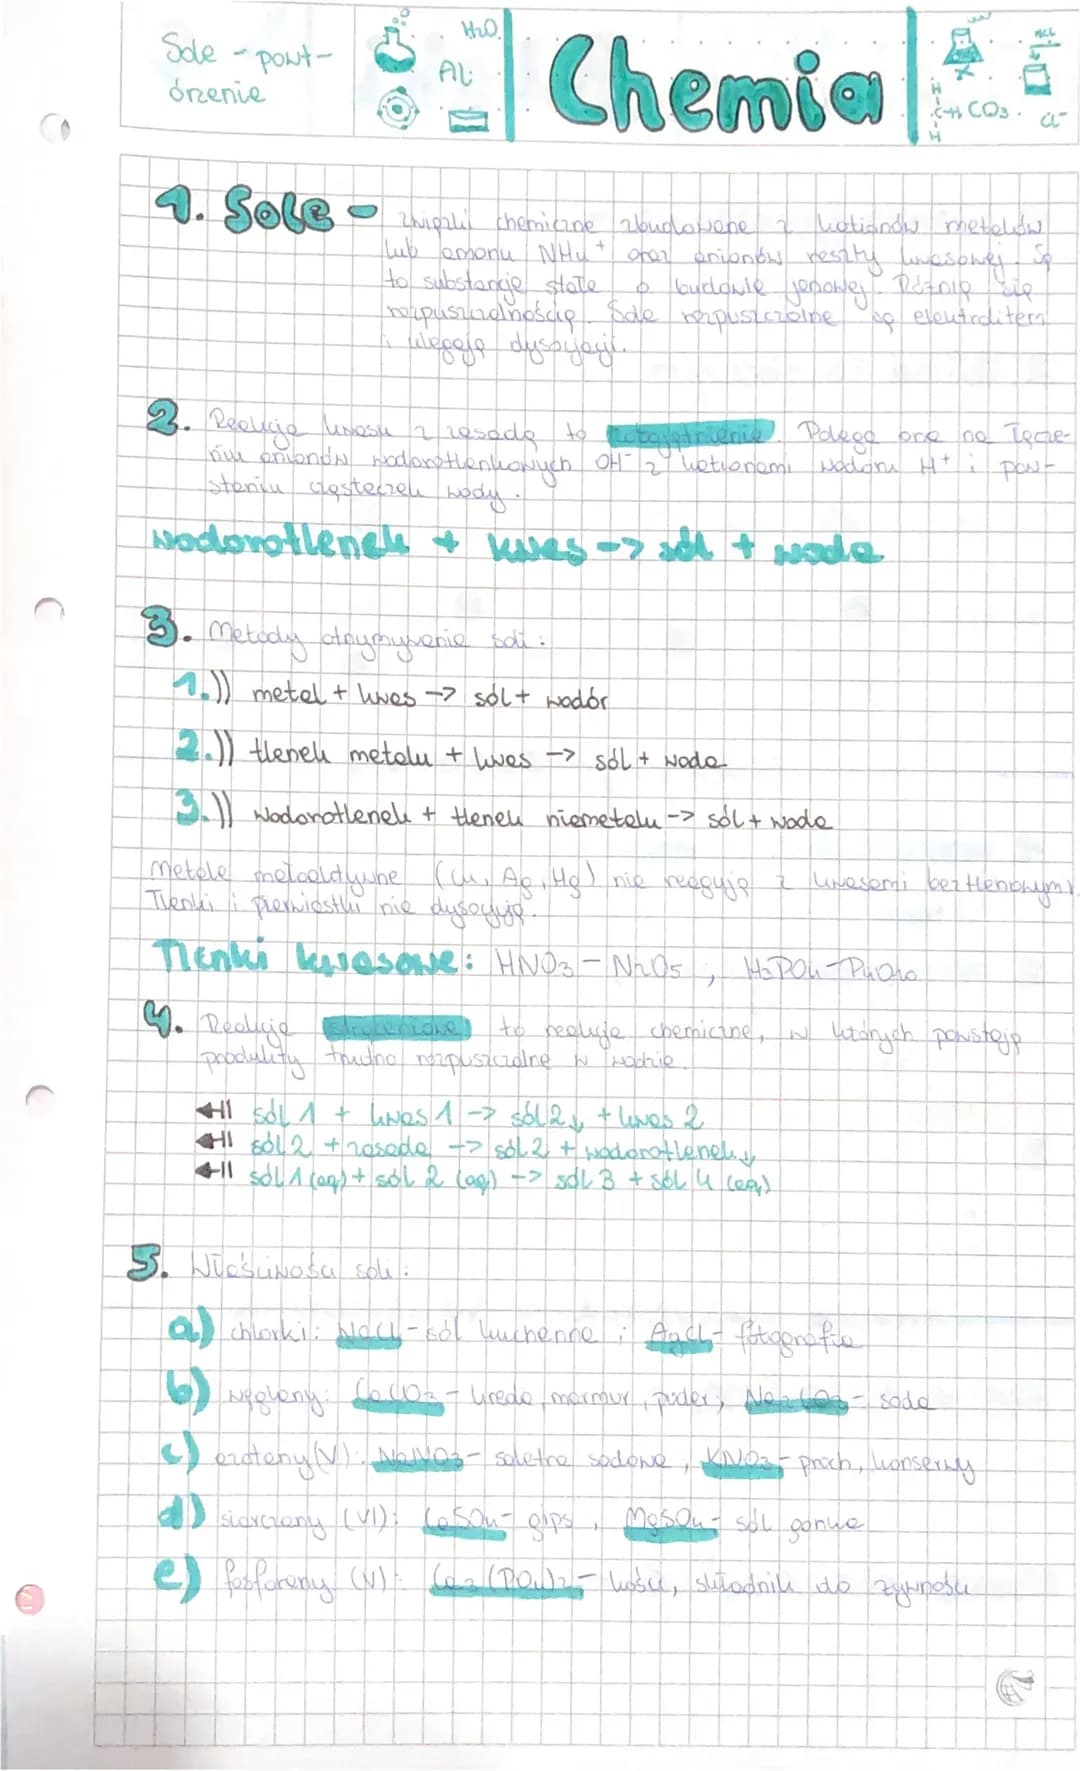 Sole - powt-
órzenie
H2O
Al
Chemia
HCl
CO3
Cl-
1. Sole - związki chemiczne zbudowane z kationów metalów
lub amonu NH4+ oraz anionów reszty kwasowej. Są
to substancje stałe o budowie jonowej. Różnią się
rozpuszczalnością. Sole rozpuszczalne są elektrolitem
i ulegają dysocjacji.
2. Reakcja kwasu z zasadą to zobojętnienie. Polega ona na łącze-
niu anionów wodorotlenkowych OH- z kationami wodoru H+ i pow-
staniu cząsteczek wody.
wodorotlenek + kwas -> sól + woda
3. Metody otrzymywania soli:
1.)) metal + kwas -> sól + wodór
2.)) tlenek metalu + kwas -> sól + woda
3.)) wodorotlenek + tlenek niemetalu -> sól + woda
Metale nieaktywne (Cu, Ag, Hg) nie reagują z kwasami beztlenowymi.
Tlenki i pierwiastki nie dysocjują.
Tlenki kwasowe: HNO3 - N2O5, H3PO4 - P4O10
4. Reakcje strąceniowe to reakcje chemiczne, w których powstają
produkty trudno rozpuszczalne w wodzie.
sól 1 + kwas 1 -> sól 2↓ + kwas 2
sól 2 + zasada -> sól 2 + wodorotlenek↓
sól 1 (aq) + sól 2 (aq) -> sól 3 + sól 4 (aq)
5. Właściwości soli:
a) chlorki: NaCl - sól kuchenna ; AgCl - fotografia
b) węglany: CaCO3 - kreda, marmur, puder; Na2CO3 - soda
c) azotany (V): NaNO3 - saletra sodowa, KNO3 - proch, konserwy
d) siarczany (VI): CaSO4 - gips, MgSO4 - sól gorzka
e) fosforany (V): Ca3(PO4)2 - kości, składnik do żywności